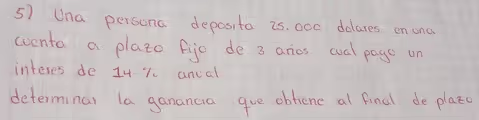 5) Una persona deposita 25.000 dolares en una
cuenta a plazo fijo de 3 años cual paga un
interes de 14 % anual
determinar la ganancia que obtiene al final de plazo